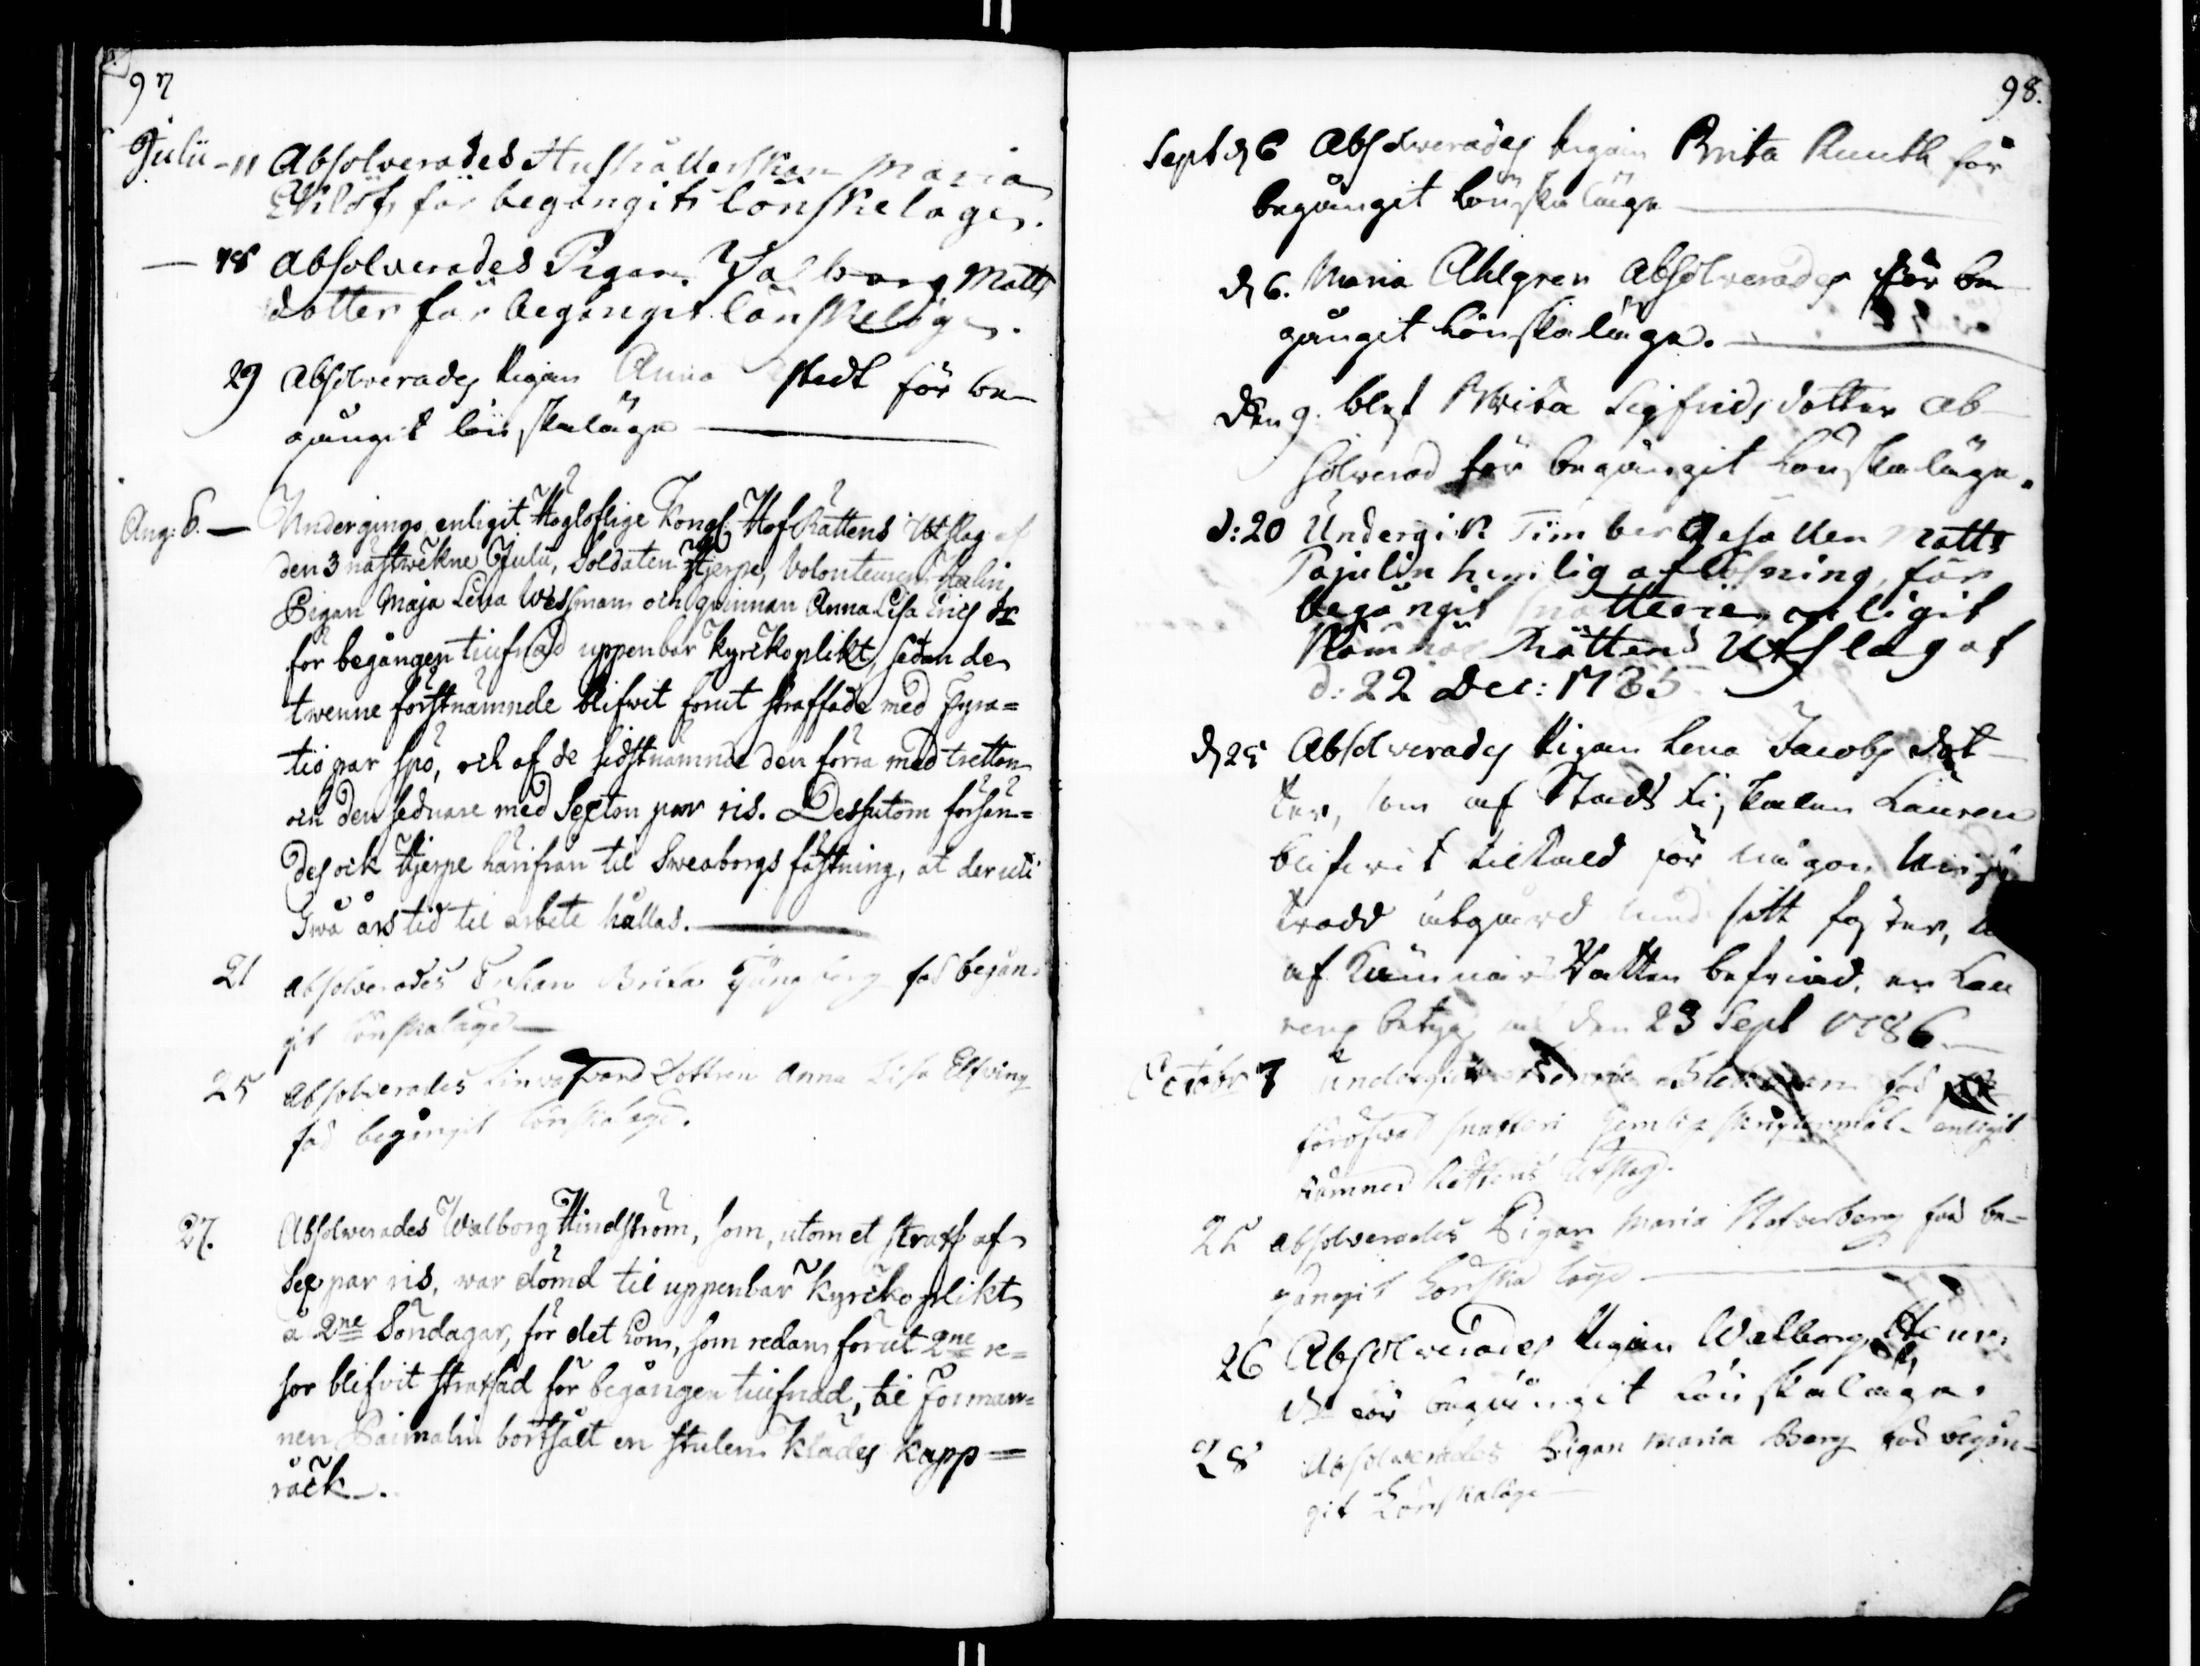 97
Julii - 11 Absolverades Hushållerskan Maria
Ekløf för begångit lönskeläge.
— 18 Absolverades Pigan Walborg Matts
dotter för begångit lönskeläge.
29 Absolverades Pigan Anna stedt för be-
gångit lönskaläge
Aug: 6. — Undergingo enligit Högloflige Kongl. Hof Rättens Utslag af
den 3 nästwekne Julii, Soldaten Hjerpe, Volonteuren Stålin
Pigan Maja Lena Wessman och qvinnan Anna Lisa Erics dr
för begången tiufnad uppenbar Kyrckoplikt, sedan de
twenne förstnämnde blifwit förut straffade med Fyra=
tio par spö, och af de sidstnämnde den förra med tretton
och den sednare med Sexton par ris. Dessutom försän=
des ock Hjerpe härifrån til Sweaborgs fästning, at der uti
Twå års tid til arbete hållas.
21 Absolverades Enkan Brita Ljungberg för begån-
git lönskaläge
25 Absolverades Linväfvare Dottren Anna Lisa Elfving
för begångit lönskaläge.
27. Absolverades Walborg Hindström, som, utom et straff af
Sex par ris, war dömd til uppenbar Kyrckoplikt
å 2ne Söndagar, för det hon, som redan förut 2ne re=
sor blifvit straffad för begången tiufnad, til Forman=
nen Paimalin bortsålt en stulen Klädes Kapp=
råck.
98.
Sept d 6 Absolverades Pigan Brita Ruuth för
begångit lönskaläge
d 6. Maria Ahlgren Absolverades för be
gångit lönskaläge.
den 9. blef Brita Sigfrids dotter ab
solverad för begångit lönskaläge.
d: 20 Undergik Timber Gesällen Matts
Pajulin hemlig aflösning, för
begångit snatterie enligit
Kämnärs Rättens Utslag af
d: 22 Dec: 1785
d 25 Absolverades Pigan Lena Jacobs dot
ter, som af Stads Fiskalen Lauren
blifwit tiltald för någon
åtgärd med sitt foster,
af Kämnärs Rätten befriad, en Lau
rens betyg af den 23 Sept 1786.
Octobr 7 undergick Blekman för
föröfwad snatteri hemlig skriftermål enligit
Kämners Rättens Utslag.
25 Absolverades Pigan Maria för be=
gångit Lönska läge
26 Absolverades Pigan Walborg Henr.
dr för begångit lönskaläge.
28 Absolverades Pigan Maria Berg för begån-
git Lönskaläge